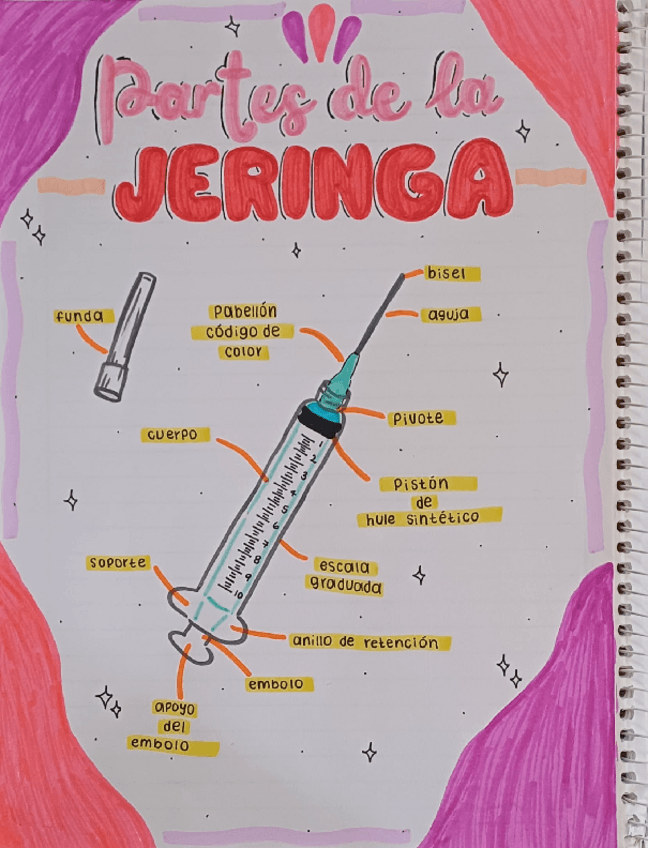 Partes de la
JERINGA
bisel
funda
Pabellón
código de
color
aguja
Pivote
cuerpo
Pistón
de
hule sintético
1
2
3
4
5
6
7
8
9
10
soporte
escala
graduada
anillo de retención
embolo
apoyo
del
embolo